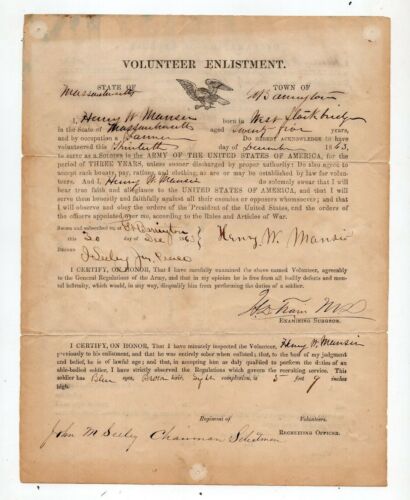 VOLUNTEER ENLISTMENT.
STATE OF
TOWN OF
Massachusetts
Gt Barrington
I, Henry W. Mansir born in West Stockbridge
in the State of Massachusetts aged twenty five years,
and by occupation a Farmer Do HEREBY ACKNOWLEDGE to have
volunteered this Thirtieth day of December 1863,
to serve as a Soldier in the ARMY OF THE UNITED STATES OF AMERICA, for the
period of THREE YEARS, unless sooner discharged by proper authority: Do also agree to
accept such bounty, pay, rations, and clothing, as are or may be established by law for volun-
teers. And I, Henry W. Mansir do solemnly swear that I will
bear true faith and allegiance to the UNITED STATES OF AMERICA, and that I will
serve them honestly and faithfully against all their enemies or opposers whomsoever; and that
I will observe and obey the orders of the President of the United States, and the orders of
the officers appointed over me, according to the Rules and Articles of War.
Sworn and subscribed to, at Gt Barrington
this 30 day of Dec 1863
BEFORE
Henry W. Mansir
I CERTIFY, ON HONOR, That I have carefully examined the above named Volunteer, agreeably
to the General Regulations of the Army, and that in my opinion he is free from all bodily defects and men-
tal infirmity, which would, in any way, disqualify him from performing the duties of a soldier.
M D
EXAMINING SURGEON.
I CERTIFY, ON HONOR, That I have minutely inspected the Volunteer, Henry W. Mansir
previously to his enlistment, and that he was entirely sober when enlisted; that, to the best of my judgment
and belief, he is of lawful age; and that, in accepting him as duly qualified to perform the duties of an
able-bodied soldier, I have strictly observed the Regulations which govern the recruiting service. This
soldier has Blue eyes, Brown hair, light complexion, is 5 feet 9 inches
high.
Regiment of Volunteers.
John M Seeley Chairman Selectmen
RECRUITING OFFICER.